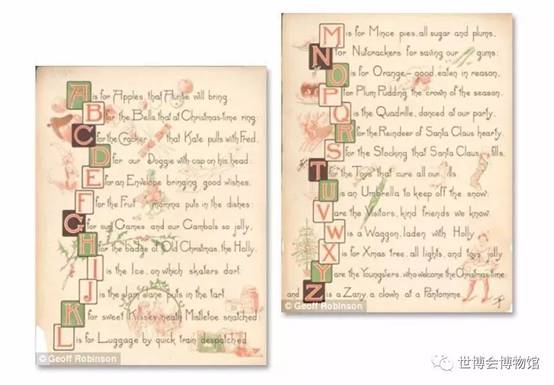 A is for Apples, that Auntie will bring
B for the Bells that at Christmas-time ring
C for the Cracker that Kate pulls with Fred.
D for our Doggie with cap on his head.
E for an Envelope bringing good wishes.
F for the Fruit Momma puts in the dishes.
G for our Games and our Gambols so jolly.
H for the badge of Old Christmas, the Holly.
I is the Ice, on which skaters dart
J is the Jam Jane puts in the tart
K for sweet Kisses neath Mistletoe snatched
L is for Luggage by quick train despatched
© Geoff Robinson
M is for Mince pies, all sugar and plums,
N for Nutcrackers for saving our gums:
O is for Orange - good, eaten in reason,
P for Plum Pudding, the crown of the season.
Q is the Quadrille, danced at our party.
R for the Reindeer of Santa Claus hearty.
S for the Stocking that Santa Claus fills.
T for the Toys that cure all our ills
U is an Umbrella to keep off the snow.
V are the Visitors, kind friends we know
W is a Waggon, laden with Holly
X is for Xmas tree, all lights, and toys jolly
Y are the Youngsters, who welcome the Christmas-time
and Z is a Zany, a clown at a Pantomime.
© Geoff Robinson
世博会博物馆